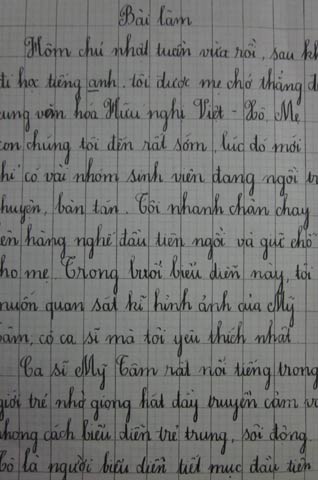 Bài làm
Hôm chủ nhật tuần vừa rồi, sau kh
đi học tiếng anh, tôi được mẹ chở thẳng đ
ung văn hóa Hữu nghị Việt - Xô. Mẹ
con chúng tôi đến rất sớm, lúc đó mới
hỉ có vài nhóm sinh viên đang ngồi tr
huyện, bàn tán. Tôi nhanh chân chạy
ên hàng ghế đầu tiên ngồi và giữ chỗ
ho mẹ. Trong buổi biểu diễn này, tôi
muốn quan sát kĩ hình ảnh của Mỹ
âm, cô ca sĩ mà tôi yêu thích nhất
Ca sĩ Mỹ Tâm rất nổi tiếng trong
giới trẻ nhờ giọng hát đầy truyền cảm và
phong cách biểu diễn trẻ trung, sôi động.
ô là người biểu diễn tiết mục đầu tiên